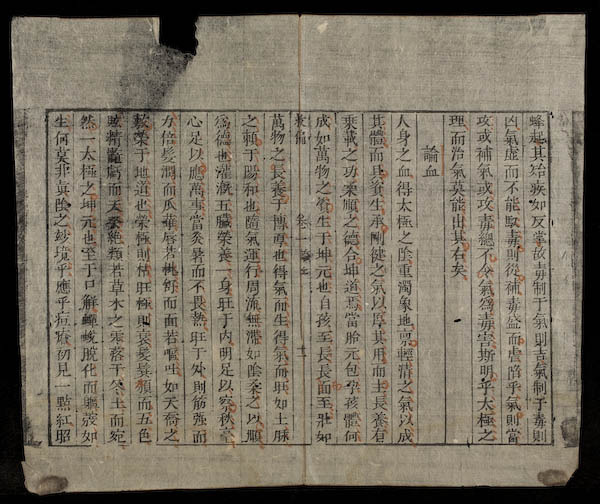 蜂起其始疾如反掌故毒制于氣則吉氣制于毒則
凶氣虛而不能馭毒則從補毒盛而虐陷乎氣則當
攻或補氣或攻毒總不令氣爲毒害斯明乎太極之
理而治氣莫能出其右矣
論血
人身之血得太極之陰重濁象地而輕清之氣以成
其體而具資生承剛健之氣以厚其用而主長養有
乘載之功柔順之德合坤道焉當胎元包孕孩體何
成如萬物之資生于坤元也自孩至長長而至壯如
救偏 卷一
萬物之長養于博厚也得氣而生得氣而旺如土脉
之賴于陽和也隨氣運行周流無滯如陰柔之以順
爲德也灌溉五臟榮養一身旺于内明足以察秋毫
心足以應萬事當炎暑而不畏熱旺于外則筋強而
力倍髮潤而瓜華唇若桃舒而面若吐如天喬之
敷榮于地道也榮極則枯旺極則衰髮鬢頽而五色
晦精虧而天癸絶類若草木之零落于冬土而宛
然一太極之坤元也至于口解脫化而如
生何莫非真陰之妙境乎應乎痘瘡初見一點紅昭